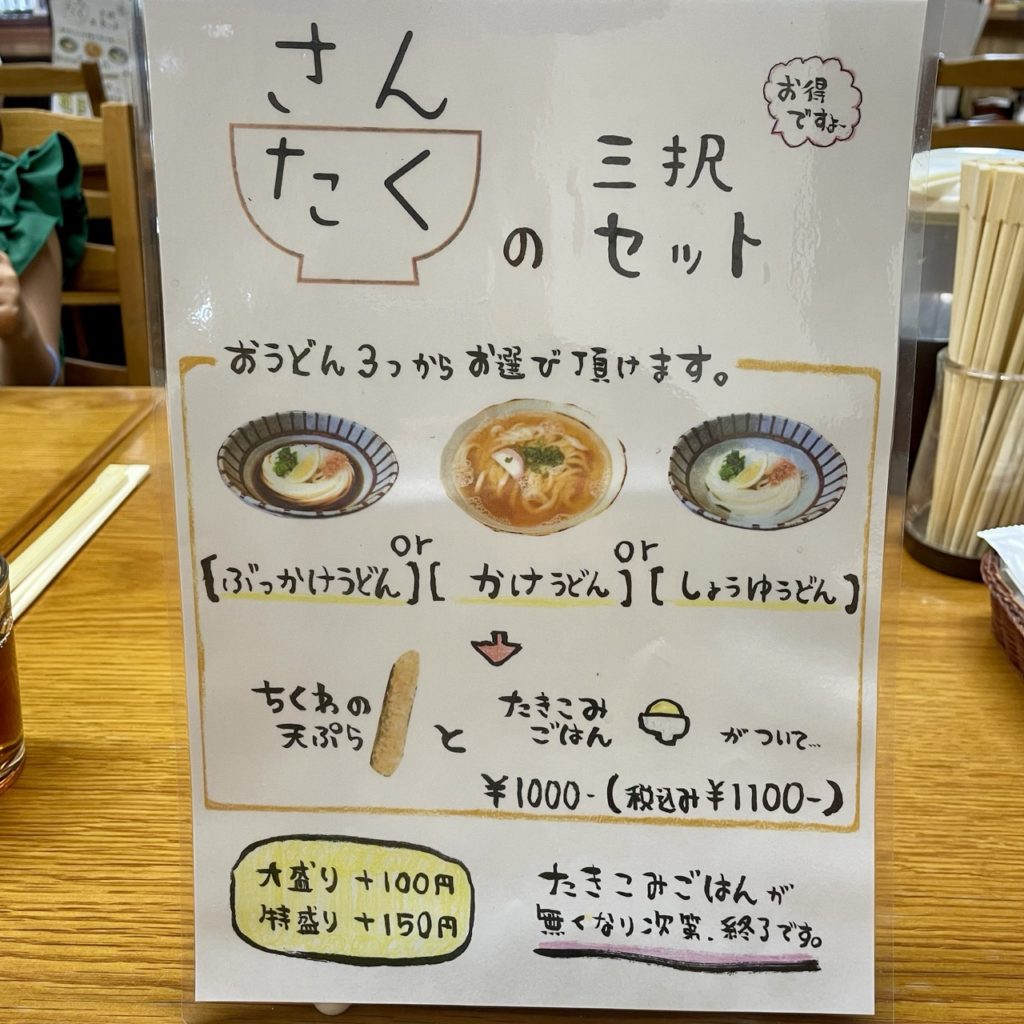 さん
たく
の
三択
セット
お得
ですよ~
おうどん3つからお選び頂けます。
or
or
【ぶっかけうどん】【かけうどん】【しょうゆうどん】
ちくわの
天ぷら
と
たきこみ
ごはん
がついて…
¥1000-(税込み¥1100-)
大盛り +100円
特盛り +150円
たきこみごはんが
無くなり次第、終了です。